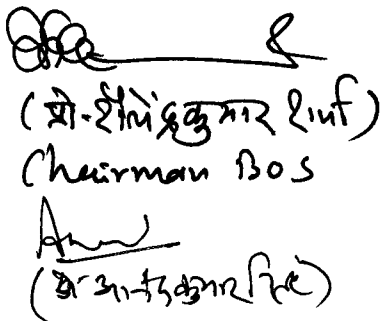 (प्रो. शैलेंद्र कुमार शर्मा)
Chairman BOS
(डॉ आनंद कुमार सिंह)